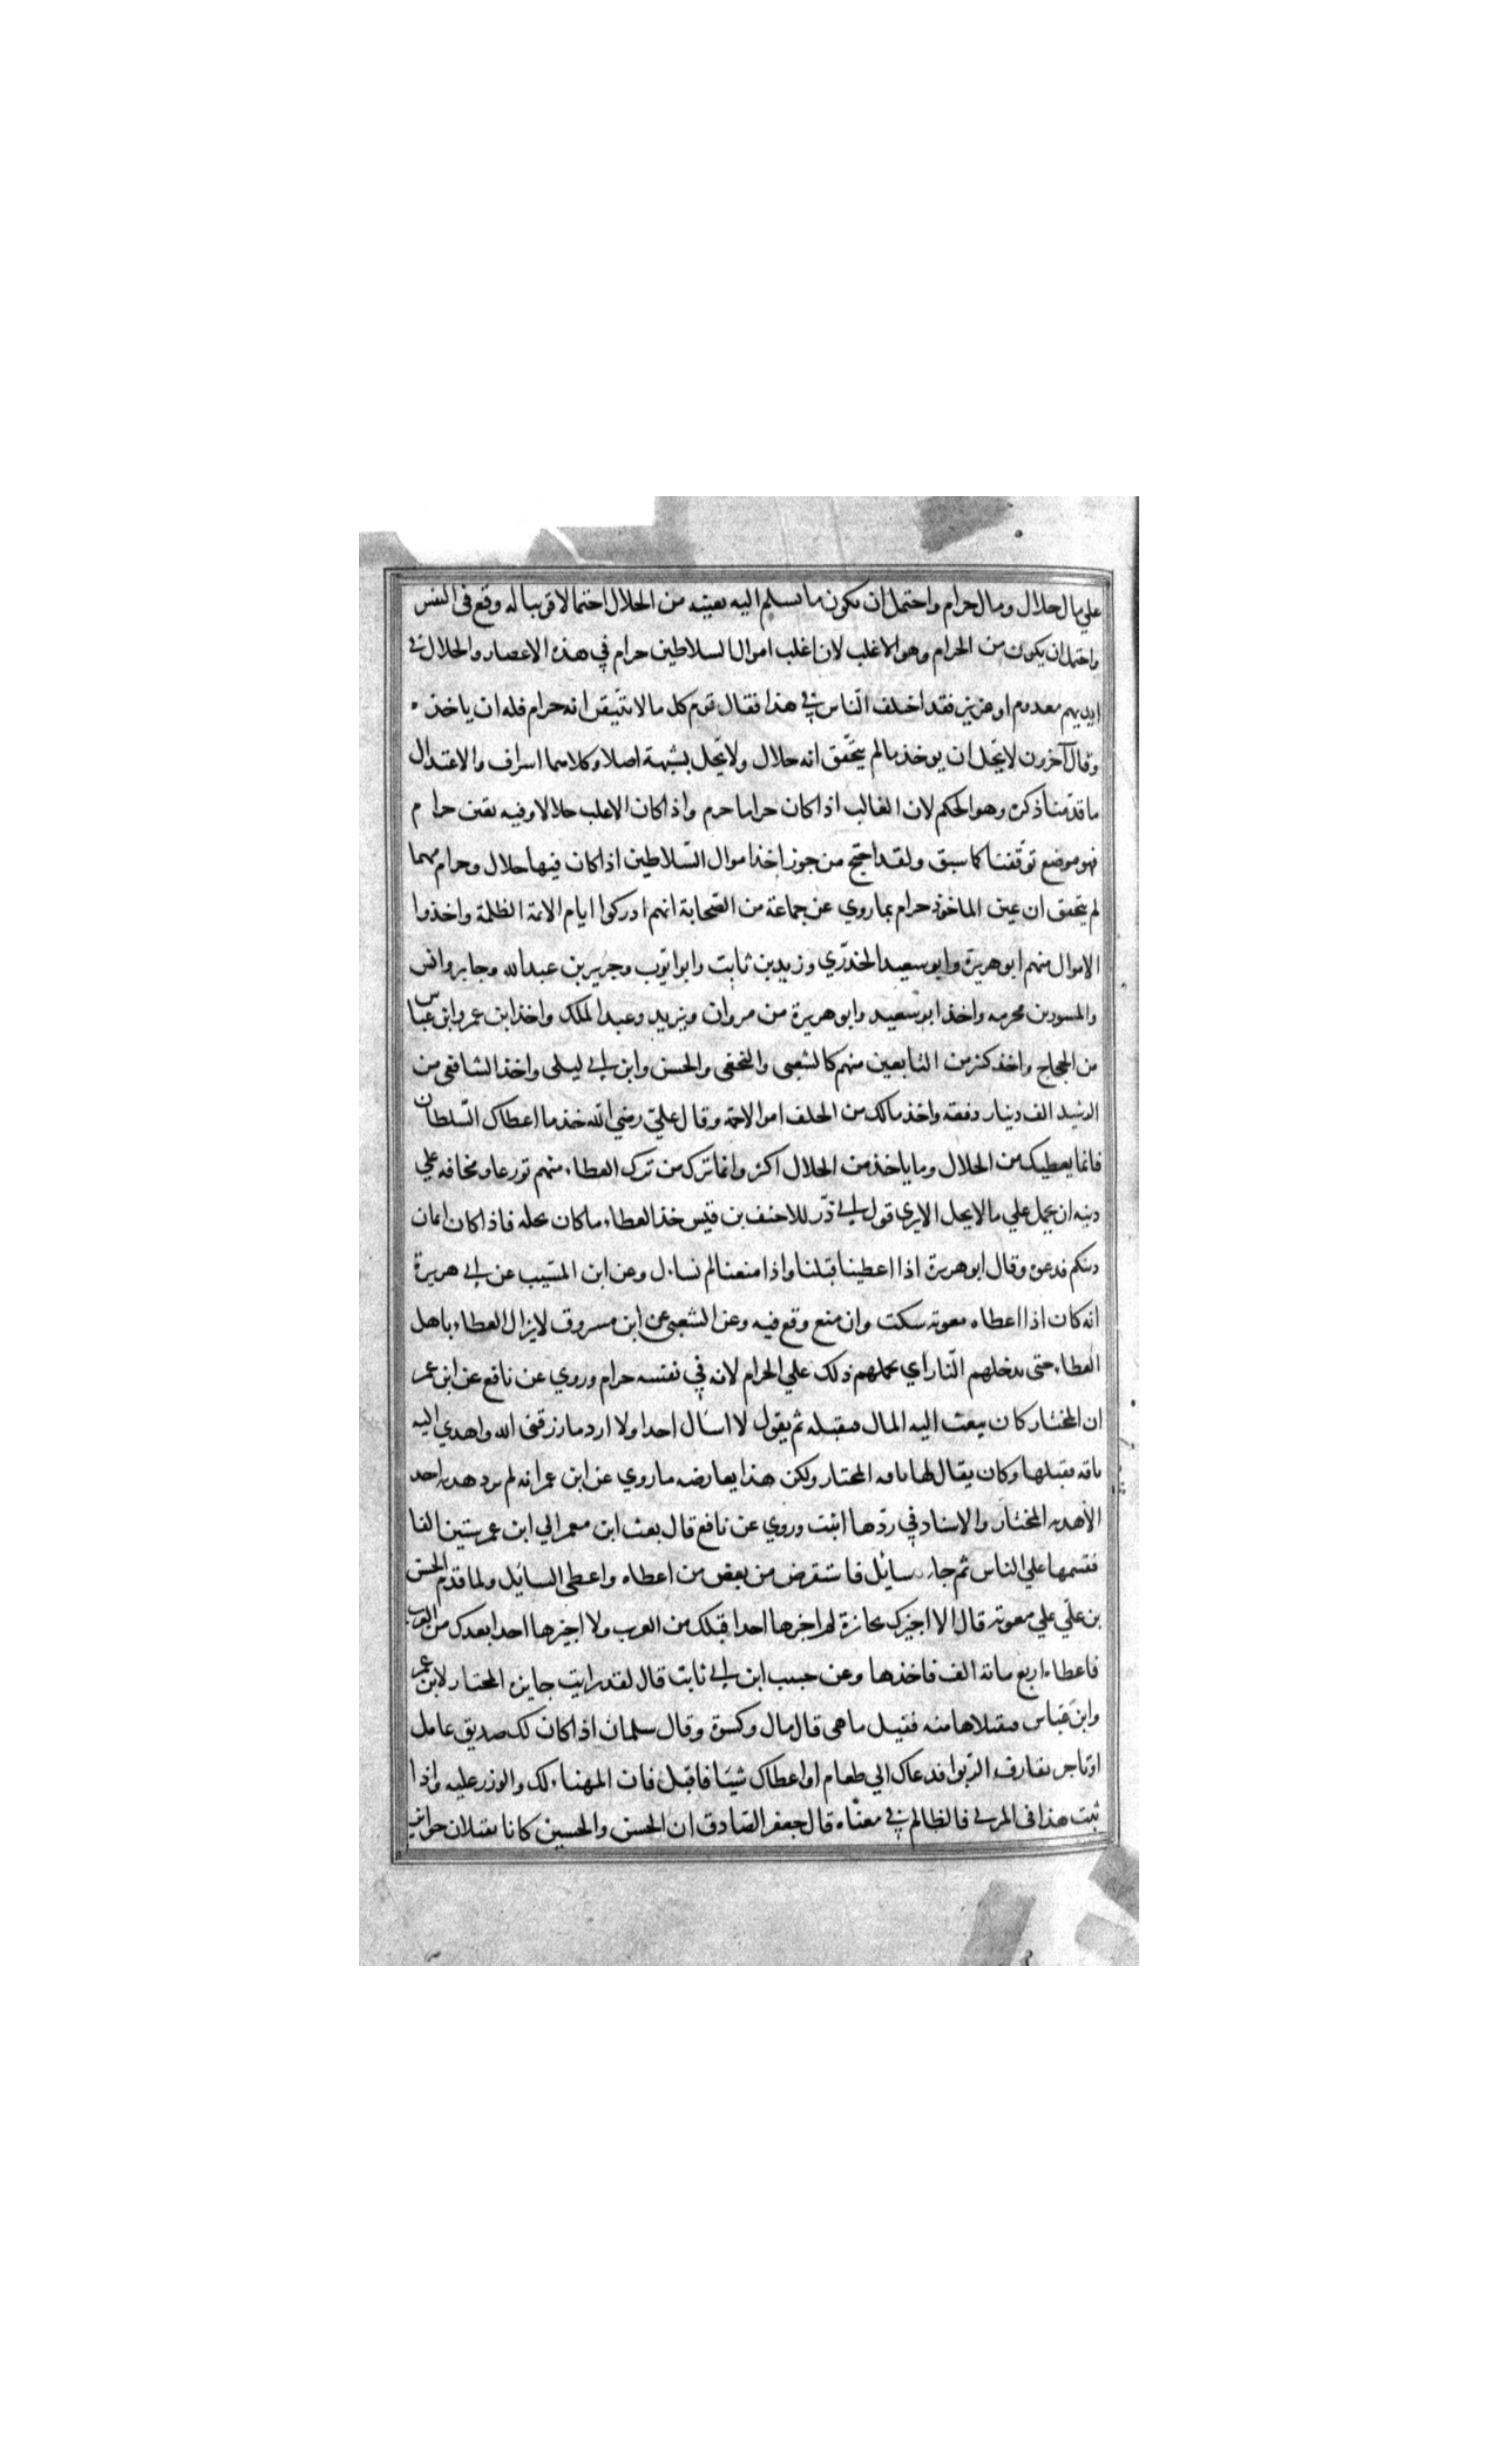 علي مال حلال ومال حرام واحتمل ان يكون ما يسلم اليه بعينه من الحلال احتمالا قريبا له وقع فى النفس
واحتمل ان يكون من الحرام وهو الاغلب لان اغلب اموال السلاطين حرام في هذه الاعصار والحلال في
ايديهم معدوم او عزيز فقد اختلف النّاس في هذا فقال قوم كل ما لا يتيقن انه حرام فله ان ياخذه
وقال آخرون لا يحّل ان يوخذ ما لم يتحّقق انه حلال ولا تحّل بشبهة اصلا وكلاهما اسراف والاعتدال
ما قدّمنا ذكره وهو الحكم لان الغالب اذا كان حراما حرم واذا كان الاغلب حلالا وفيه يقين حرام
فهو موضع توّقفنا كما سبق ولقد احتج من جوز اخذ اموال السّلاطين اذا كان فيها حلال وحرام مهما
لم يتحقق ان عين الماخوذ حرام بما روي عن جماعة من الصّحابة انهم ادركوا ايام الائمة الظلمة واخذوا
الاموال منهم ابو هريرة وابو سعيد الخدّري وزيد بن ثابت وابو ايّوب وجرير بن عبد الله وجابر وانس
والمسور بن مخرمه واخذ ابو سعيد وابو هريرة من مروان ويزيد وعبد الملك واخذ ابن عمر وابن عباس
من الحجاج واخذ كثر من التابعين منهم كالشعبى والنخعى والحسن وابن ابي ليلى واخذ الشافعى من
الرشيد الف دينار دفعة واخذ مالك من الخلفا اموالا جمّة وقال عليّ رضي الله خذ ما اعطاك السّلطان
فانما يعطيك من الحلال وما ياخذ من الحلال اكثر وانما ترك من ترك العطاء منهم تورعا ومخافه علي
دينه ان يحمل علي ما لا يحل الا يري قول ابي ذّر للاحنف بن قيس خذ العطاء ما كان نحله فاذا كان اثمان
دينكم فدعوه وقال ابو هريرة اذا اعطينا قبلنا واذا منعنا لم نسال وعن ابن المسّيب عن ابي هريرة
انه كان اذا اعطاه معوية سكت وان منع وقع فيه وعن الشعبى عن ابن مسروق لا يزال العطاء باهل
العطاء حتى يدخلهم النّار اي يحملهم ذلك علي الحرام لانه في نفسه حرام وروي عن نافع عن ابن عمر
ان المختار كان يبعث اليه المال فيقبله ثم يقول لا اسال احدا ولا ارد ما رزقنى الله واهدي اليه
ناقه فقبلها وكان يقال لها ناقه المختار ولكن هذا يعارضه ما روي عن ابن عمر انه لم يرد هديه احد
الا هديه المختار والاسناد في ردّها اثبت وروي عن نافع قال بعث ابن معمر الي ابن عمر بستين الفا
فقسمها علي الناس ثم جاءه سائل فاستقرض من بعض من اعطاه واعطى السايل ولما قدم الحسن
بن علّي علي معوية قال الا اجيزك بجائزة لم اجزها احدا قبلك من العرب ولا اجيزها احدا بعدك من العرب
فاعطاه اربع مائة الف فاخذها وعن حبيب ابن ابي ثابت قال لقد رايت جايزه المختار لابن عمر
وابن عّباس فيقبلاها منه فقيل ما هى قال مال وكسوة وقال سلمان اذا كان لك صديق عامل
او تاجر يقارف الربوا فدعاك الي طعام او اعطاك شيئا فاقبل فان المهناء لك والوزر عليه واذا
ثبت هذا فى المربي فالظالم في معناه قال جعفر الصّادق ان الحسن والحسين كانا يقبلان جوائز